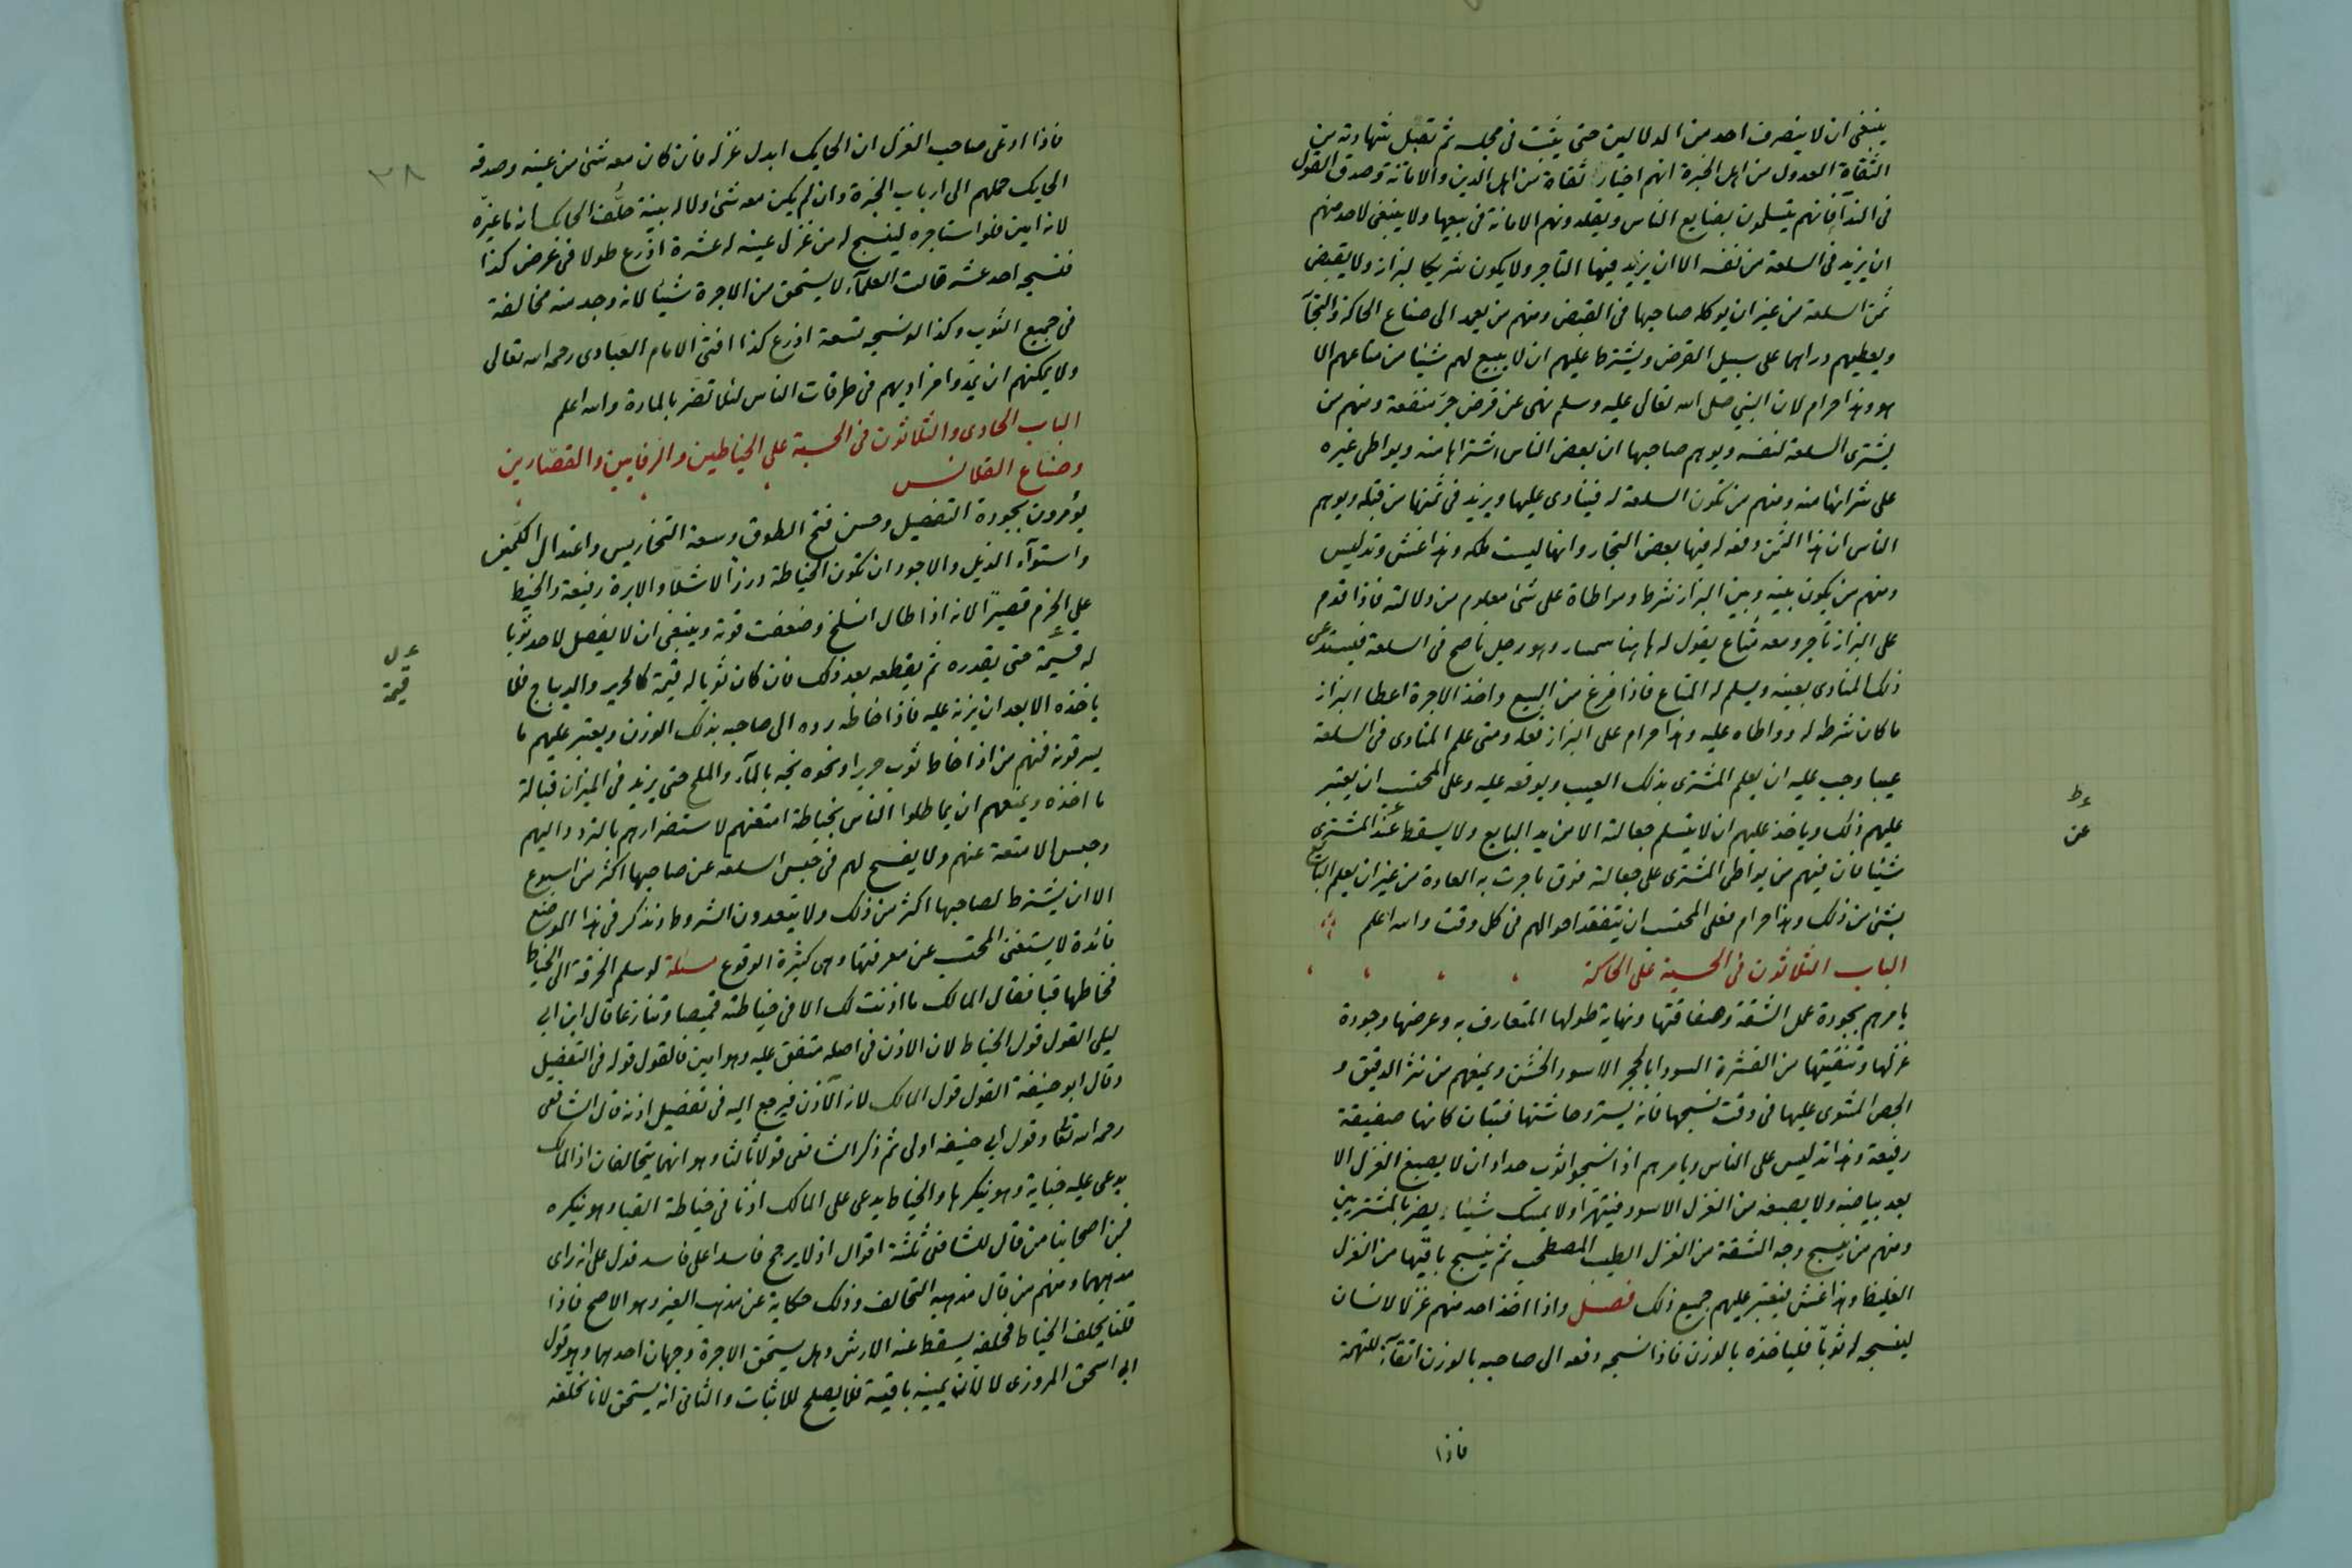 ينبغى ان لا ينصرف احد من الدلالين حتى يثبت فى مجلسه ثم تقبل شهادته من
الثقاة العدول من اهل الخبرة انهم اخيار ثقاة من اهل الدين والامانة وصدق القول
فى الندآ فانهم يتسلمون بضايع الناس ويقلدونهم الامانة فى بيعها ولا ينبغى لاحد منهم
ان يزيد فى السلعة من نفسه الا ان يزيد فيها التاجر ولا يكون شريكا لبزاز ولا يقبض
ثمن السلعة من غير ان يوكله صاحبها فى القبض ومنهم من يعمد الى صناع الحاكة والتجآ
ويعطيهم دراهما على سبيل القرض ويشترط عليهم ان لا يبيع لهم شيئا من متاعهم الا
هو وهذا حرام لان النبى صلى الله تعالى عليه وسلم نهى عن قرض جر منفعة ومنهم من
يشترى السلعة لنفسه ويوهم صاحبها ان بعض الناس اشتراها منه ويواطى غيره
على شرائها منه ومنهم من تكون السلعة له فينادى عليها ويزيد فى ثمنها من قبله ويوهم
الناس ان هذا الثمن دفعه له فيها بعض التجار وانها ليست ملكه وهذا غش وتدليس
ومنهم من يكون بينه وبين البزاز شرط ومواطاة على شئ معلوم من دلالته فاذا قدم
على البزاز تاجر ومعه متاع يقول له هاهنا سمسار وهو رجل ناصح فى السلعة فيستدعى
ذلك المنادى بعينه ويسلم له المتاع فاذا فرغ من البيع واخذ الاجرة اعطا البزاز
ما كان شرطه له وواطاه عليه وهذا حرام على البزاز فعله ومتى علم المنادى فى السلعة
عيبا وجب عليه ان يعلم المشترى بذلك العيب ويوقفه عليه وعلى المحتسب ان يعتبر
عليهم ذلك وياخذ عليهم ان لا يتسلم جعالة الا من يد البايع ولا يسقط عند المشترى
عط
عن
شيئا فان فيهم من يواطى المشترى على جعالة فوق ما جرت به العادة من غير ان يعلم البايع
بشئ من ذلك وهذا حرام فعلى المحتسب ان يتفقد احوالهم فى كل وقت والله اعلم
الباب الثلاثون فى الحسبة على الحاكة
يامرهم بجودة عمل الشقة وصفاقتها ونهاية طولها المتعارف به وعرضها وجودة
غزلها وتنقيتها من القشرة السودا بالحجر الاسود الخشن ويمنعهم من نثر الدقيق و
الجص المشوى عليها فى وقت نسجها فانه يستر وحاشتها فتبان كانها صفيقة
رفيعة وهذا تدليس على الناس ويامرهم اذا نسجوا ثوب حداد ان لا يصبغ الغزل الا
بعد بياضه ولا يصبغه من الغزل الاسود فيتهرا ولا يمسك شيئا يضر بالمشتريين
ومنهم من ينسج وجه الشقة من الغزل الطيب المصطحب ثم ينسج باقيها من الغزل
الغليظ وهذا غش فيعتبر عليهم جميع ذلك فصل واذا اخذ احد منهم غزلا لانسان
لينسجه له ثوبا فلياخذه بالوزن فاذا نسجه دفعه الى صاحبه بالوزن اتقآء للتهمة
فاذا
٣٨
فاذا ادعى صاحب الغزل ان الحايك ابدل غزله فان كان معه شئ من عينه وصدقه
الحايك حملهم الى ارباب الخبرة وان لم يكن معه شئ ولا له بينة حلف الحايك انه ما غيره
لانه امين فلو استاجره لينسج له من غزل عينه له عشرة اذرع طولا فى عرض كذا
فنسجه احد عشر قالت العلمآء لا يستحق من الاجرة شيئا لانه وجد منه مخالفة
فى جميع الثوب وكذا لو نسجه تسعة اذرع كذا افتى الامام العبادى رحمه الله تعالى
ولا يمكنهم ان يمدوا مزاويهم فى طرقات الناس لئلا تضر بالمارة والله اعلم
الباب الحادى والثلاثون فى الحسبة على الخياطين والرفايين والقصارين
وصناع القلانس
يؤمرون بجودة التفصيل وحسن فتح الطوق وسعة التخاريس واعتدال الكمين
واستوآء الذيل والاجود ان تكون الخياطة درزا لا شلا والابرة رفيعة والخيط
على الخرم قصيرا لانه اذا طال انسلخ وضعفت قوته وينبغى ان لا يفصل لاحد ثوبا
له قيمة حتى يقدره ثم يقطعه بعد ذلك فان كان ثوبا له قيمة كالحرير والديباج فلا
عل
قيمة
ياخذه الا بعد ان يزنه عليه فاذا خاطه رده الى صاحبه بذلك الوزن ويعتبر عليهم ما
يسرقونه فمنهم من اذا خاط ثوب حريرا ونحوه نجه بالمآء والملح حتى يزيد فى الميزان قبالة
ما اخذه ويمنعهم ان يماطلوا الناس بخياطة امتعتهم لاستضرارهم بالتردد اليهم
وحبس الامتعة عنهم ولا يفسح لهم فى حبس السلعة عن صاحبها اكثر من اسبوع
الا ان يشترط لصاحبها اكثر من ذلك ولا يتعدون الشروط ونذكر فى هذا الموضع
فائدة لا يستغنى المحتسب عن معرفتها وهى كثيرة الوقوع مسئلة لو سلم الخرقة الى الخياط
فخاطها قبا فقال المالك ما اذنت لك الا فى خياطته قميصا وتنازعا قال ابن ابى
ليلى القول قول الخياط لان الاذن فى اصله متفق عليه وهو امين فالقول قوله فى التفصيل
وقال ابو حنيفة القول قول المالك لانه الآذن فيرجع اليه فى تفصيل اذنه قال الشافعى
رحمه الله تعا وقول ابى حنيفه اولى ثم ذكر الشافعى قولا ثالثا وهو انهما يتحالفان اذ المالك
يدعى عليه جناية وهو ينكرها والخياط يدعى على المالك اذنا فى خياطة القبا وهو ينكره
فمن اصحابنا من قال للشافعى ثلثة اقوال اذ لا يرجح فاسد اعلى فاسد فدل على انه راى
مذهبهما ومنهم من قال مذهبه التحالف وذلك حكاية عن مذهب الغير وهو الاصح فاذا
قلنا يحلف الخياط فحلفه يسقط عنه الارش وهل يستحق الاجرة وجهان احدهما وهو قول
ابى اسحق المروزى لا لان يمينه باقية فلا يصلح للاثبات والثانى انه يستحق لانا نحلفه